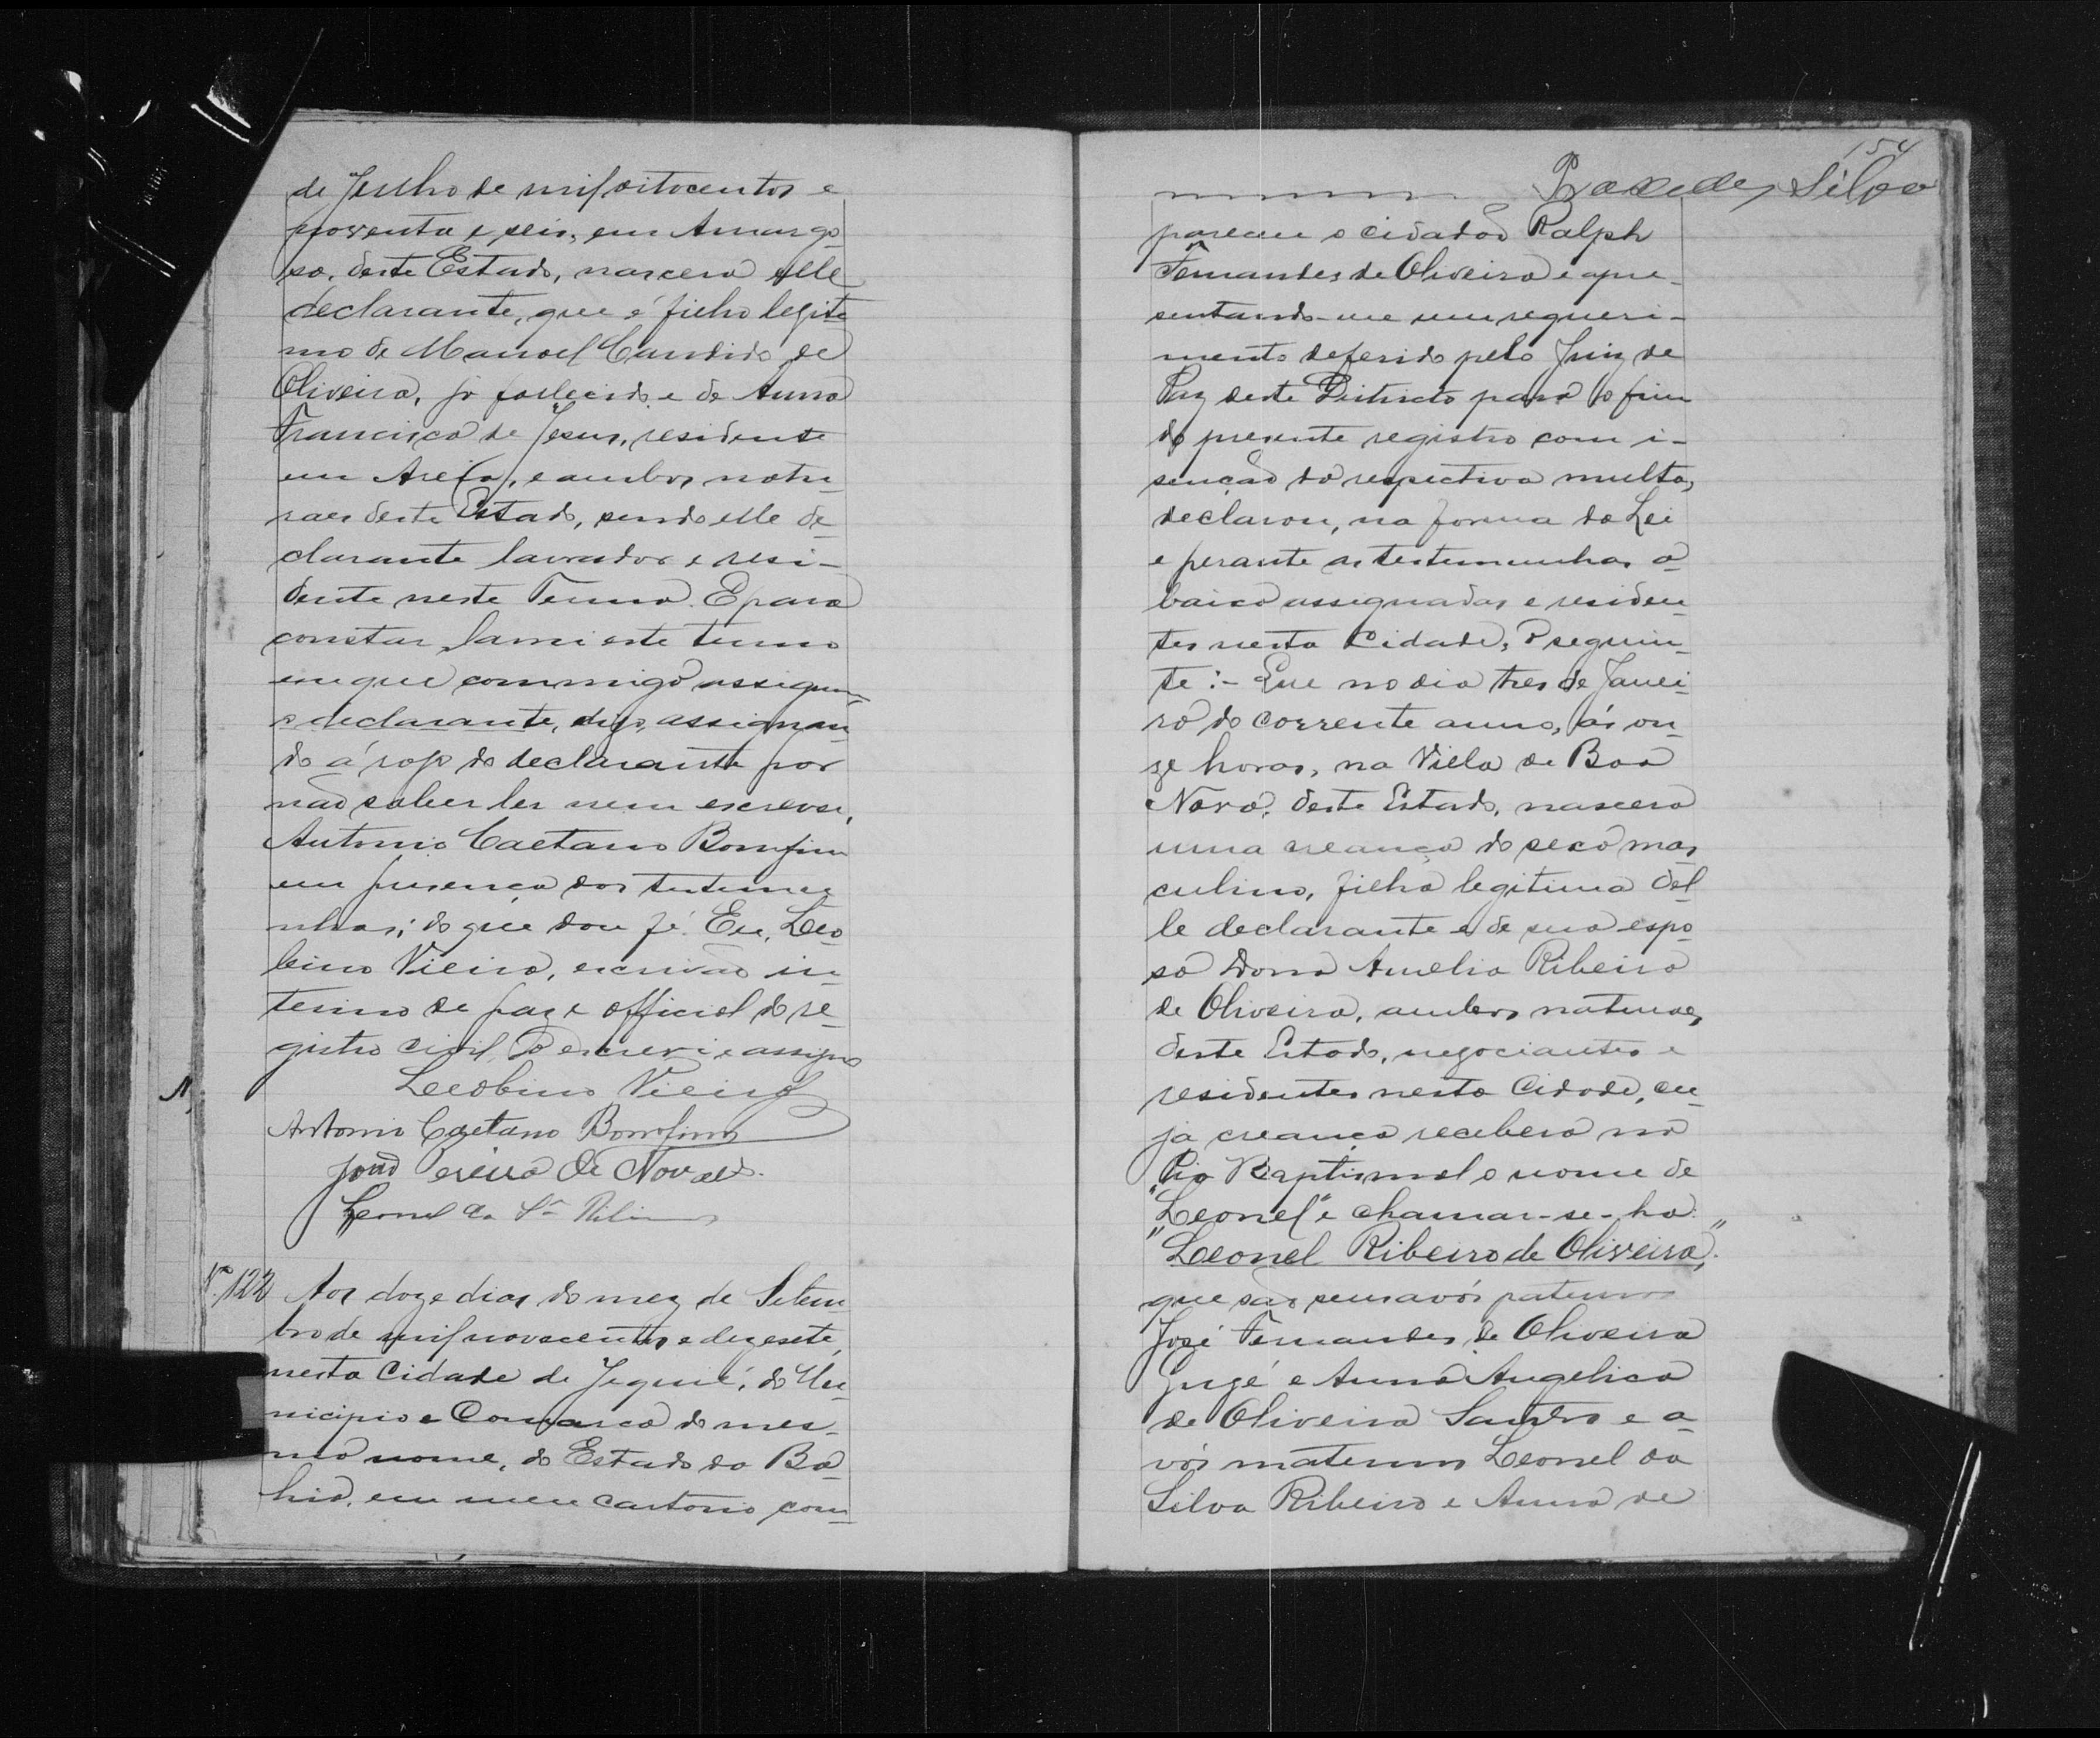 de Julho de mil oitocentos e
noventa e seis, em Amargo
sa, deste Estado, nascera elle
declarante, que é filho legiti
mo de Manoel Candido de
Oliveira, já fallecido e de Anna
Francisca de Jesus, residente
em Areia, e ambos natu-
raes deste Estado, sendo elle de-
clarante lavrador e resi-
dente neste Termo. E para
constar, lavrei este termo
em que commigo assigna
o declarante, digo, assignan-
do á rogo do declarante por
não saber ler nem escrever,
Antonio Caetano Bomfim
em presença das testemu
nhas; do que dou fé. Eu, Leo-
bino Vieira, escrivão in-
terino de paz e official do re-
gistro civil, o escrevi e assigno
Leobino Vieira
Antonio Caetano Bomfim
João Pereira de Novaes.
Leonel da Sª Ribeiro
Nº 122 Aos doze dias do mez de Setem
bro de mil novecentos e dezesete,
nesta Cidade de Jequié, do Mu-
nicipio e Comarca do mes-
mo nome, do Estado da Ba-
hia, em meu cartorio com-
154
Praxedes Silva
pareceu o cidadão Ralph
Fernandes de Oliveira e apre-
sentando-me um requeri-
mento deferido pelo Juiz de
Paz deste Districto para o fim
do presente registro com i-
senção da respectiva multa,
declarou, na forma da Lei
e perante as testemunhas a-
baixo assignadas e residen-
tes nesta Cidade, o seguin-
te:- Que no dia tres de Janei-
ro do corrente anno, ás on-
ze horas, na Villa de Boa
Nova, deste Estado, nascera
uma creança do sexo mas
culino, filha legitima del-
le declarante e de sua espo-
sa Dona Amelia Ribeiro
de Oliveira, ambos naturaes
deste Estado, negociantes e
residentes nesta Cidade, cu-
ja creança recebera na
Pia Baptismal o nome de
"Leonel" e chamar-se-ha:
"Leonel Ribeiro de Oliveira";
que são seus avós paternos
José Fernandes de Oliveira
Gugé e Anna Angelica
de Oliveira Santos e a-
vós maternos Leonel da
Silva Ribeiro e Anna de